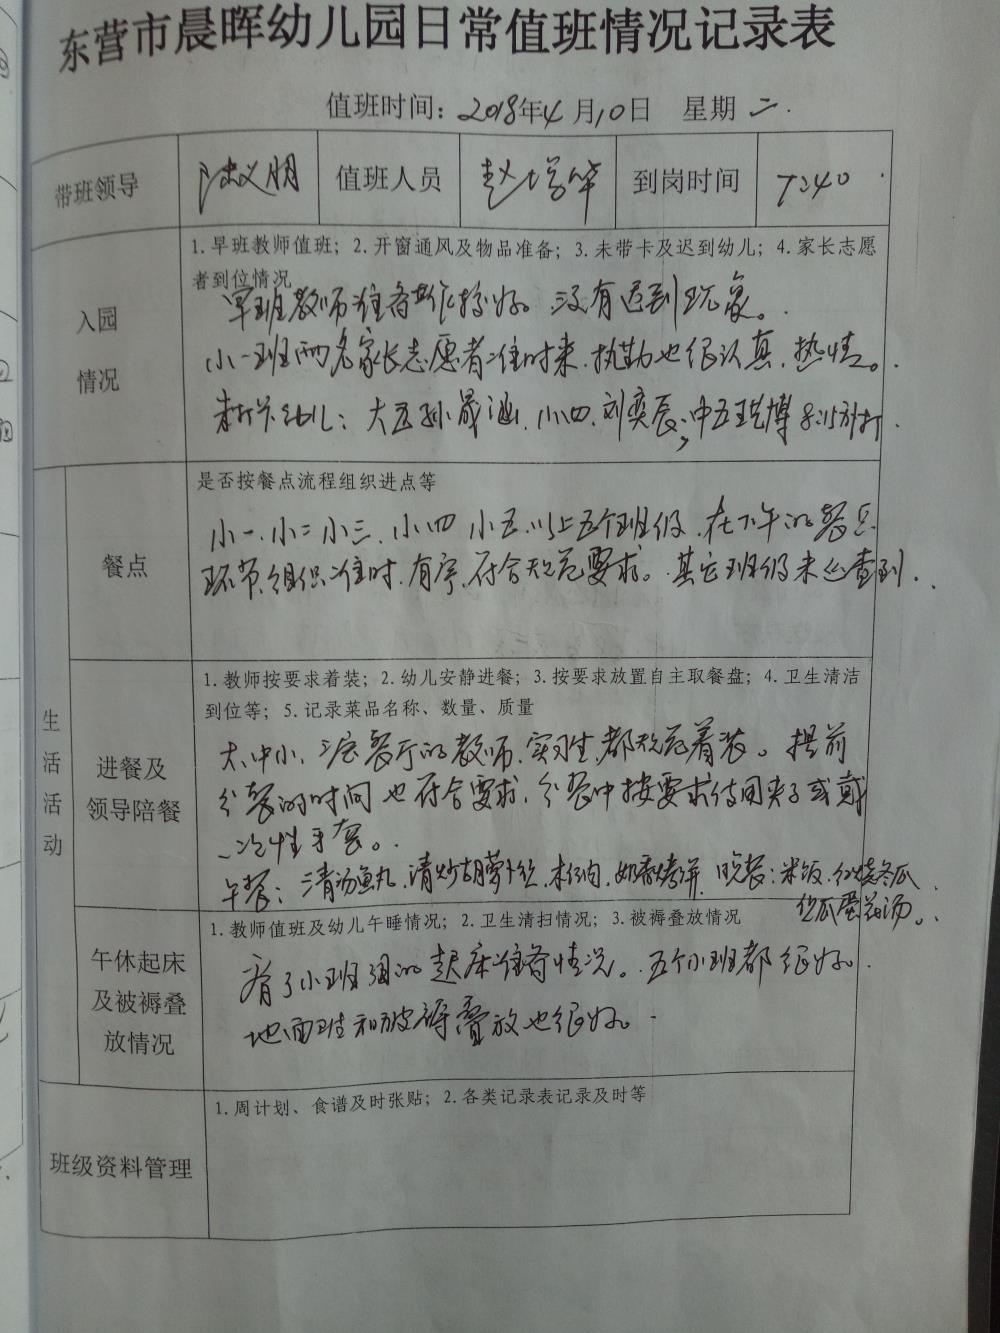 东营市晨晖幼儿园日常值班情况记录表
值班时间：2018年4月10日 星期二.
带班领导 值班人员 赵增华 到岗时间 7:40
入园
情况
1. 早班教师值班；2. 开窗通风及物品准备；3. 未带卡及迟到幼儿；4. 家长志愿
者到位情况
早班教师准备工作较好。没有迟到现象。
小一班两名家长志愿者准时来，执勤也很认真，热情。
未打卡幼儿：大五孙晟涵，小四、刘奕辰；中五 博 8:15分打
生活活动
餐点
是否按餐点流程组织进点等
小一、小二小三、小四 小五以上五个班级，在下午的餐点
环节，组织准时、有序，符合规范要求。其它班级未 查到.
进餐及
领导陪餐
1. 教师按要求着装；2. 幼儿安静进餐；3. 按要求放置自主取餐盘；4. 卫生清洁
到位等；5. 记录菜品名称、数量、质量
大、中小、三层餐厅的教师、实习生，都规范着装。提前
分餐的时间也符合要求，分餐中按要求使用夹子或戴
一次性手套。
午餐：清汤鱼丸、清炒胡萝卜丝、 肉、奶香烤饼 晚餐：米饭、红烧冬瓜
丝瓜蛋花汤。
午休起床
及被褥叠
放情况
1. 教师值班及幼儿午睡情况；2. 卫生清扫情况；3. 被褥叠放情况
看了小班组的起床准备情况。五个小班都很好。
地面卫生和被褥叠放也很好。
班级资料管理
1. 周计划、食谱及时张贴；2. 各类记录表记录及时等